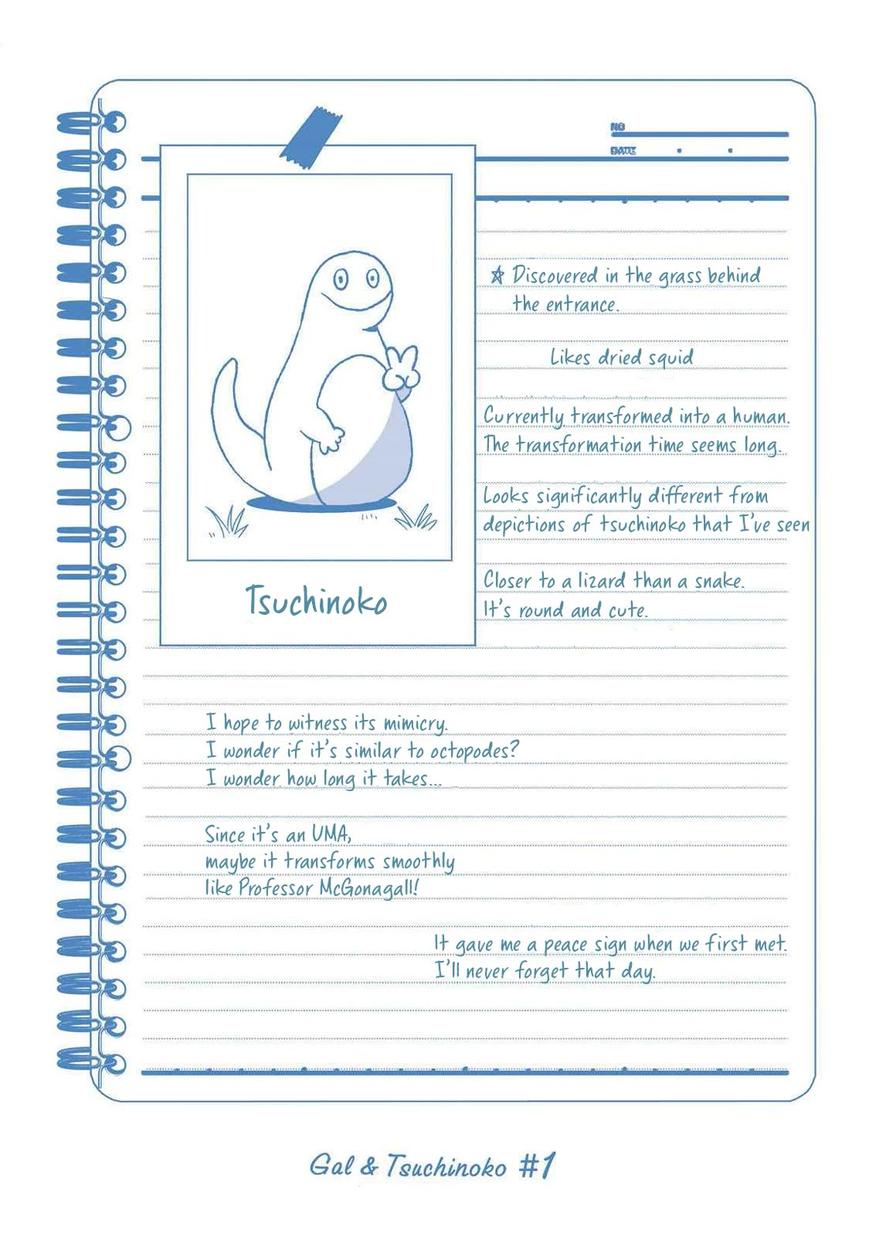 NO
DATE
☆ Discovered in the grass behind
the entrance.
Likes dried squid
Currently transformed into a human.
The transformation time seems long.
Looks significantly different from
depictions of tsuchinoko that I've seen
Closer to a lizard than a snake.
It's round and cute.
Tsuchinoko
I hope to witness its mimicry.
I wonder if it's similar to octopodes?
I wonder how long it takes...
Since it's an UMA,
maybe it transforms smoothly
like Professor McGonagall!
It gave me a peace sign when we first met.
I'll never forget that day.
Gal & Tsuchinoko #1